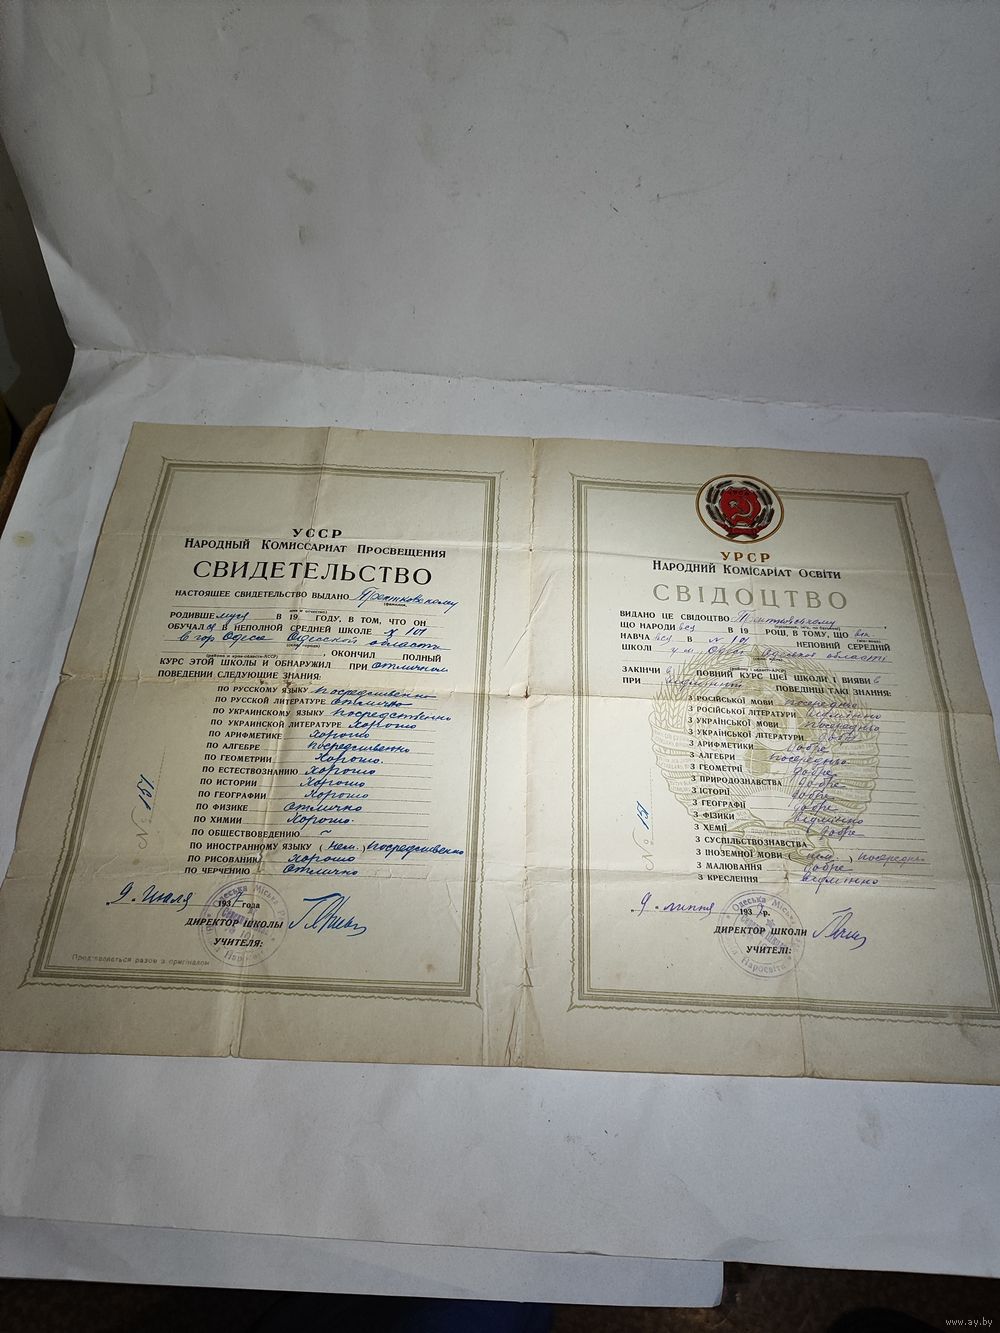 УССР
Народный Комиссариат Просвещения
СВИДЕТЕЛЬСТВО
НАСТОЯЩЕЕ СВИДЕТЕЛЬСТВО ВЫДАНО
РОДИВШЕМУСЯ В 19 ГОДУ, В ТОМ, ЧТО ОН
ОБУЧАЛСЯ В НЕПОЛНОЙ СРЕДНЕЙ ШКОЛЕ № 101
в гор Одесса Одесской области
, ОКОНЧИЛ ПОЛНЫЙ
КУРС ЭТОЙ ШКОЛЫ И ОБНАРУЖИЛ ПРИ отличном
ПОВЕДЕНИИ СЛЕДУЮЩИЕ ЗНАНИЯ:
ПО РУССКОМУ ЯЗЫКУ посредственно
ПО РУССКОЙ ЛИТЕРАТУРЕ отлично
ПО УКРАИНСКОМУ ЯЗЫКУ посредственно
ПО УКРАИНСКОЙ ЛИТЕРАТУРЕ хорошо
ПО АРИФМЕТИКЕ хорошо
ПО АЛГЕБРЕ посредственно
ПО ГЕОМЕТРИИ хорошо.
ПО ЕСТЕСТВОЗНАНИЮ хорошо
ПО ИСТОРИИ хорошо
ПО ГЕОГРАФИИ хорошо
ПО ФИЗИКЕ отлично
ПО ХИМИИ хорошо.
ПО ОБЩЕСТВОВЕДЕНИЮ ~
ПО ИНОСТРАННОМУ ЯЗЫКУ ( нем. ) посредственно
ПО РИСОВАНИЮ хорошо
ПО ЧЕРЧЕНИЮ отлично
№ 151
9. Июля 1937 года
ДИРЕКТОР ШКОЛЫ
УЧИТЕЛЯ:
Пред'является разом з оригіналом
УРСР
Народний Комісаріат Освіти
СВІДОЦТВО
ВИДАНО ЦЕ СВІДОЦТВО
ЩО НАРОДИВСЯ В 19 РОЦІ, В ТОМУ, ЩО він
НАВЧАВСЯ В № 101 НЕПОВНІЙ СЕРЕДНІЙ
ШКОЛІ у м. Одесі Одеської області
ЗАКІНЧИВ ПОВНИЙ КУРС ЦІЄЇ ШКОЛИ І ВИЯВИВ
ПРИ ПОВЕДІНЦІ ТАКІ ЗНАННЯ:
З РОСІЙСЬКОЇ МОВИ посередньо
З РОСІЙСЬКОЇ ЛІТЕРАТУРИ відмінно
З УКРАЇНСЬКОЇ МОВИ посередньо
З УКРАЇНСЬКОЇ ЛІТЕРАТУРИ добре
З АРИФМЕТИКИ добре
З АЛГЕБРИ посередньо
З ГЕОМЕТРІЇ добре
З ПРИРОДОЗНАВСТВА добре
З ІСТОРІЇ добре
З ГЕОГРАФІЇ добре
З ФІЗИКИ відмінно
З ХЕМІЇ добре
З СУСПІЛЬСТВОЗНАВСТВА
З ІНОЗЕМНОЇ МОВИ ( нім. ) посередньо
З МАЛЮВАННЯ добре
З КРЕСЛЕННЯ відмінно
№ 151
9 липня 1937 р.
ДИРЕКТОР ШКОЛИ
УЧИТЕЛІ:
www.ay.by